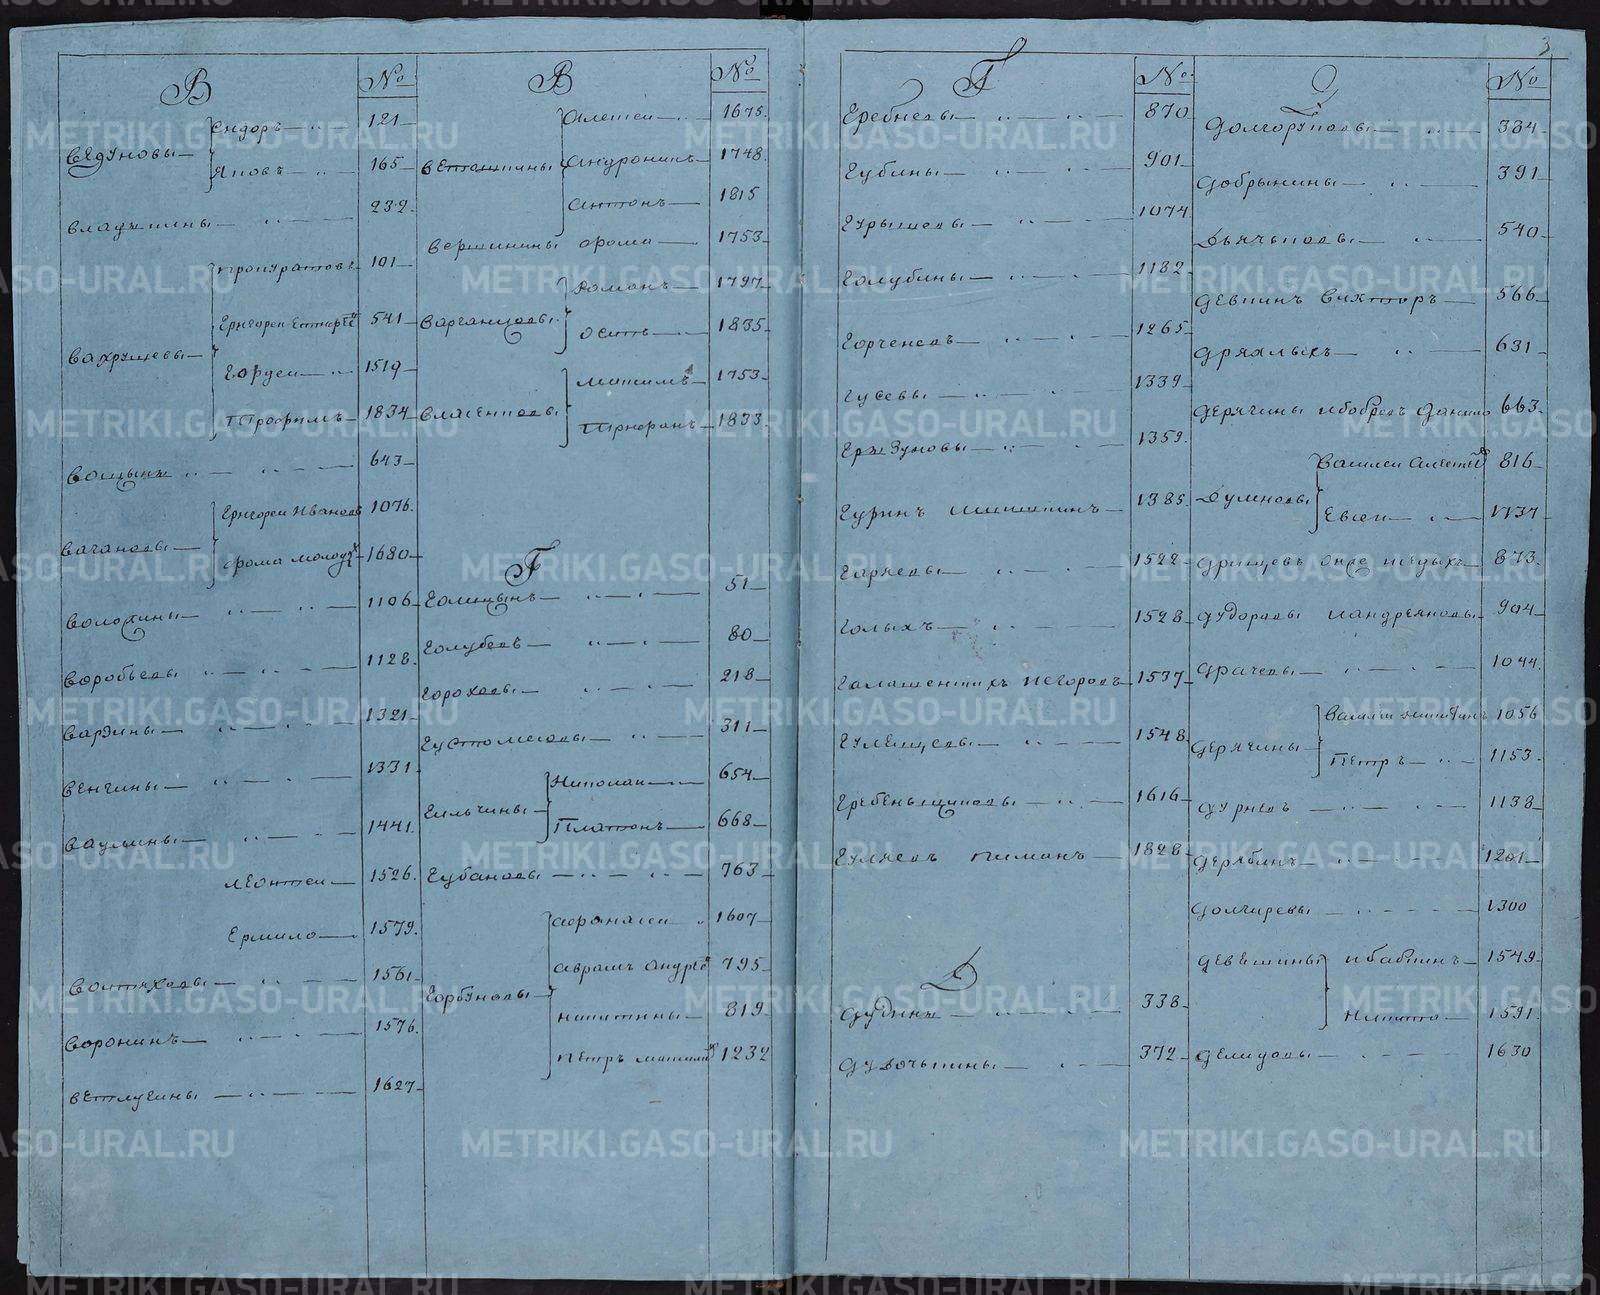 3
В №
Ведуновы Сидоръ 121
Яковъ 165
Владыкины 232
Вахрушевы Прокуратовъ 101
Григореи 541
Гордеи 1519
Трофимъ 1834
Вощынъ 643
Вагановы Григореи Ивановъ 1076
Фома 1680
Волохины 1106
Воробьевы 1128
Варзины 1321
Венгины 1331
Ваулины 1441
Леонтеи 1526
Ермило 1579
Вотяховы 1561
Воронинъ 1576
Ветлугины 1627
В №
Веташкины Алексеи 1675
Андроникъ 1748
Антонъ 1815
Вершинины Фома 1753
Варганцовы Романъ 1797
Осипъ 1835
Власенковы Максимъ 1753
Трифанъ 1833
Г
Голицынъ 51
Голубевъ 80
Гороховы 218
Густомесовы 311
Гильчины Николаи 654
Платонъ 668
Губановы 763
Горбуновы Афонасеи 1607
Аврамъ Андрее 795
Никитины 819
Петръ 1232
Г №
Гребневы 870
Губины 901
Гурышевы 1074
Голубины 1182
Горченовъ 1265
Гусевы 1339
Грызуновы 1359
Гуринъ 1385
Гаряевы 1522
Голыхъ 1528
Галашенкихъ Негоровъ 1537
Гулящевы 1548
Гребеньщиковы 1616
Гуляевъ Пиманъ 1828
Д
Дудинъ 338
Дудочькины 372
Д №
Долгоруковы 384
Добрынины 391
Дьячьковы 540
Девкинъ Викторъ 566
Дряхлыхъ 631
Дерягины и Бобровъ Данило 663
Думновы Василеи Алексее 816
Евсеи 1737
Дрищевъ онже Седыхъ 873
Дудоровы и Андреяновы 904
Драчевы 1044
Дерягины Василеи Никитинъ 1056
Петръ 1153
Дурневъ 1138
Дерябинъ 1201
Долгиревы 1300
Девешины и Бабкинъ 1549
Никита 1591
Демидовы 1630